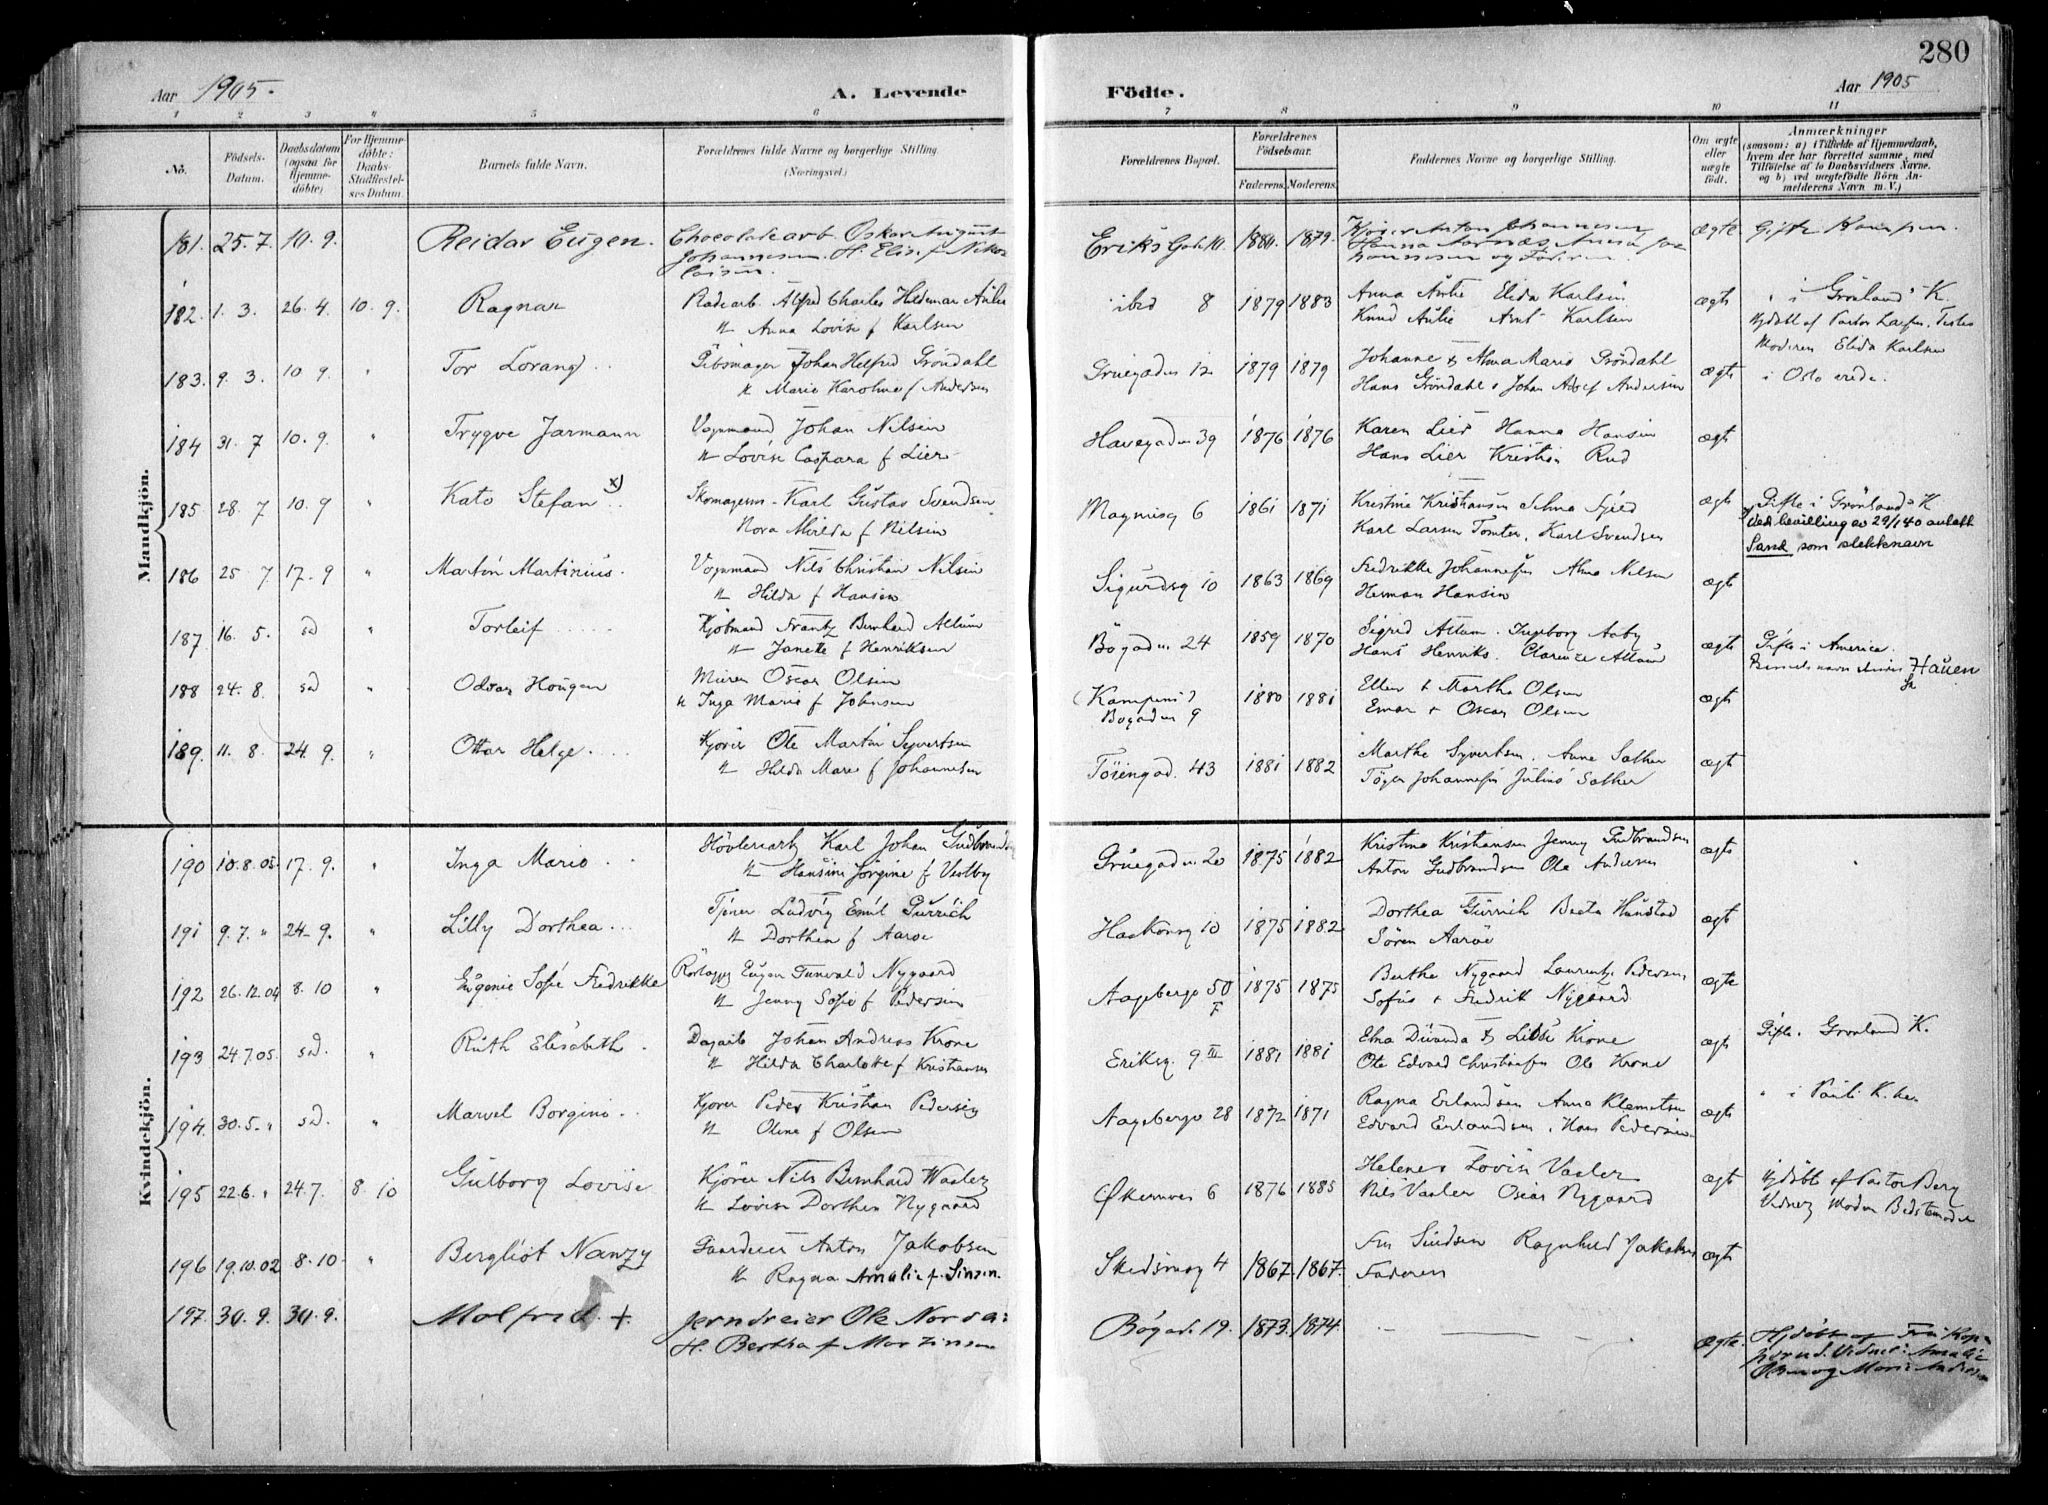 280
Aar 1905.
A. Levende
Födte.
Aar 1905
1 2 3 4 5 6 7 8 9 10 11
No.
Födsels-Datum.
Daabsdatum (ogsaa for Hjemmedöbte)
For Hjemmedöbte: Daabs-Stadfæstelses Datum.
Barnets fulde Navn.
Forældrenes fulde Navne og borgerlige Stilling.
(Næringsvei.)
Forældrenes Bopæl.
Forældrenes Födselsaar.
Faderens. Moderens.
Faddernes Navne og borgerlige Stilling.
Om ægte eller uægte födt.
Anmærkninger
(saasom: a) i Tilfælde af Hjemmedaab, hvem der har forrettet samme, med Tilföielse af to Daabsvidners Navne, og b) ved uægtefödte Börn Anmelderens Navn m. V.)
Mandkjön.
181. 25. 7. 10. 9. Reidar Eugen. Chocoladearb. Oskar August Eriks Gade 10. 1880. 1879. Kjører Anton Johannesen ægte Gifte
Johannesen. H. Elise f. Nikolaisen. Hanna Anna og Faderen.
182. 1. 3. 26. 4. 10. 9. Ragnar Alfred Charles Hildemar Aulie ibid 8 1879 1883 Anna Aulie Elida Karlsen ægte " i Grönland K.
H Anna Lovise f Karlsen Knud Aulie Karlsen Hjdöbt af Pastor
Moderen Elida Karlsen
183. 9. 3. 10 9. " Tor Lorang .. Gibsmager Johan Helfred Gröndahl Gruegaden 12 1879 1879 Johanne & Alma Marie Gröndahl ægte i Oslo
H Marie Karoline f Andersen Hans Gröndahl, Johan Andersen
184 31. 7 10. 9. " Trygve Jarmann Vognmand Johan Nilsen Havegaden 39 1876 1876 Karen Lier Hanna Hansen ægte
H Lovise Caspara f Lier Hans Lier Kristian Rud
185 28. 7 10. 9 " Kato Stefan x) Skomagersv. Karl Gustav Svendsen Magnusg 6 1861 1871 Kristine Kristiansen Selma ægte Gifte i Grönlands K
Nora f Nilsen Karl Larsen Tomter, Karl Svendsen x) Ved bevilling av 29/1 40 antatt
Sand som slektsnavn
186 25 7. 17. 9 " Martin Martinius. Vognmand Nils Christian Nilsen Sigurdsg 10 1863 1869 Fredrikke Johannesen Alma Nilsen ægte
H Hilda f Hansen Herman Hansen
187 16. 5. sd " Torleif Kjøbmand Frantz Bernhard Altum Bögaden 24 1859 1870 Sigrid Altum. Ingeborg Aaby ægte Gifte i America.
H Janette f Henriksen Hans Henriks. Clarence Altum Hauen
188 24. 8. sd " Odvar Hougen Murer Oscar Olsen (Kampens) 1880 1881 Ellen & Martha Olsen ægte
H Inga Marie f Johnsen Bögaden 9 Einar & Oscar Olsen
189. 11. 8. 24. 9. " Ottar Helge. Kjører Ole Martin Syvertsen Töiengad. 43 1881 1882 Marthe Syvertsen. Anne Sæther ægte
H Hilda Marie f Johannesen Johannesen Julius Sæther
Kvindekjön.
190 10. 8. 05 17. 9. " Inga Marie .. Hövleriarb Karl Johan Gudbrandsen Gruegaden 20 1875 1882 Kristine Kristiansen Jenny Gudbrandsen ægte
H Hansine Jörgine f Vestby Anton Gudbrandsen Ole Andersen
191 9. 7. " 24. 9. " Lilly Dorthea ... Tjener Ludvig Emil Gürrich Haakonsg 10 1875 1882 Dorthea Gürrich Beata ægte
H Dorthea f Aaröe Sören Aaröe
192 26. 12. 04 8. 10 " Eugenie Sofie Fredrikke Rörlægger Eugen Tunvald Nygaard Aagebergv 50 F 1875 1875 Berthe Nygaard Laurentze Pedersen ægte
H Jenny Sofie f Pedersen Sofus & Fredrik Nygaard
193 24. 7. 05. sd. " Ruth Elisabeth . Dagarb Johan Andreas Krone Eriksg. 9 III 1881 1881 Elna & Krone ægte Gifte. Grønland K.
H Hilda Charlotte f Kristiansen Ole Edvard Christiansen Ole Krone
194. 30. 5. " sd. " Marvel Borgine .. Kjører Peder Kristian Pedersen Aagebergv 28 1872 1871 Ragna Erlandsen Anna Klemetsen ægte " i Pauli K.
H Oline f Olsen Edvard Erlandsen, Hans Pedersen
195 22. 6. " 24. 7. 8. 10 Gulborg Lovise Kjører Nils Bernhard Waaler Økernvei 6 1876 1885 Helene & Lovise Vaaler ægte Hjdöbt af Pastor Berg
H Lovise Dorthea Nygaard Nils Vaaler Oscar Nygaard Vidner Moder Bedstemoder
196 19. 10. 02 8. 10 " Bergliot Nanzy Anton Jakobsen Skedsmog 4 1867. 1867. Fru Ragnhild Jakobsen ægte
H Ragna Amalie f. Sinsen. Faderen
197. 30. 9. 30. 9. Molfrid. + Jerndreier Ole Norda: Bögade 19. 1873. 1874. ægte. Hjdöbt af
H. Bertha f Martinsen Vidner: Amalie
og Marie Andersen